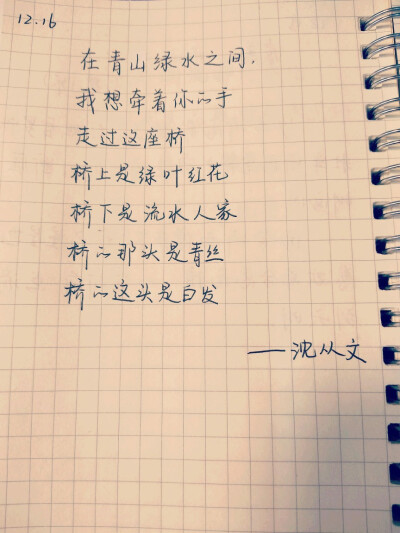 12.16
在青山绿水之间,
我想牵着你的手
走过这座桥
桥上是绿叶红花
桥下是流水人家
桥的那头是青丝
桥的这头是白发
——沈从文